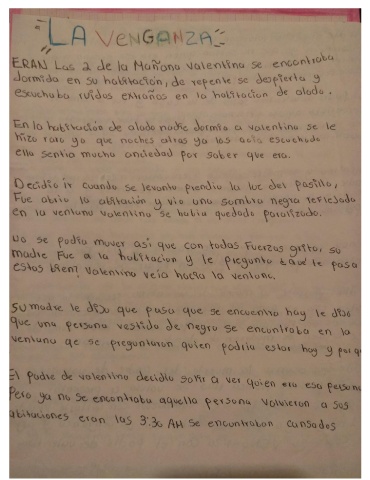 LA VENGANZA
ERAN Las 2 de la Mañana valentina se encontraba
dormida en su habitación, de repente se despierta y
escuchaba ruidos extraños en la habitacion de alado.
En la habitación de alado nadie dormia a valentina se le
hizo raro ya que noches atras ya los avia escuchado
ella sentia mucho anciedad por saber que era.
Decidio ir cuando se levanto prendio la luz del pasillo,
Fue abrio la abitación y vio una sombra negra reflejada
en la ventana valentina se habia quedado paralizada.
No se podia mover asi que con todas Fuerzas grito, su
madre Fue a la habitacion y le pregunto ¿que te pasa
estas bien? Valentina veia hacia la ventana.
Su madre le dijo que pasa que se encuentra hay le dijo
que una persona vestida de negro se encontraba en la
ventana qe se preguntaron quien podria estar hay y por q
El padre de valentina decidio salir a ver quien era esa persona
Pero ya no se encontraba aquella persona Volvieron a sus
abitaciones eran las 3:30 AM se encontraban cansados